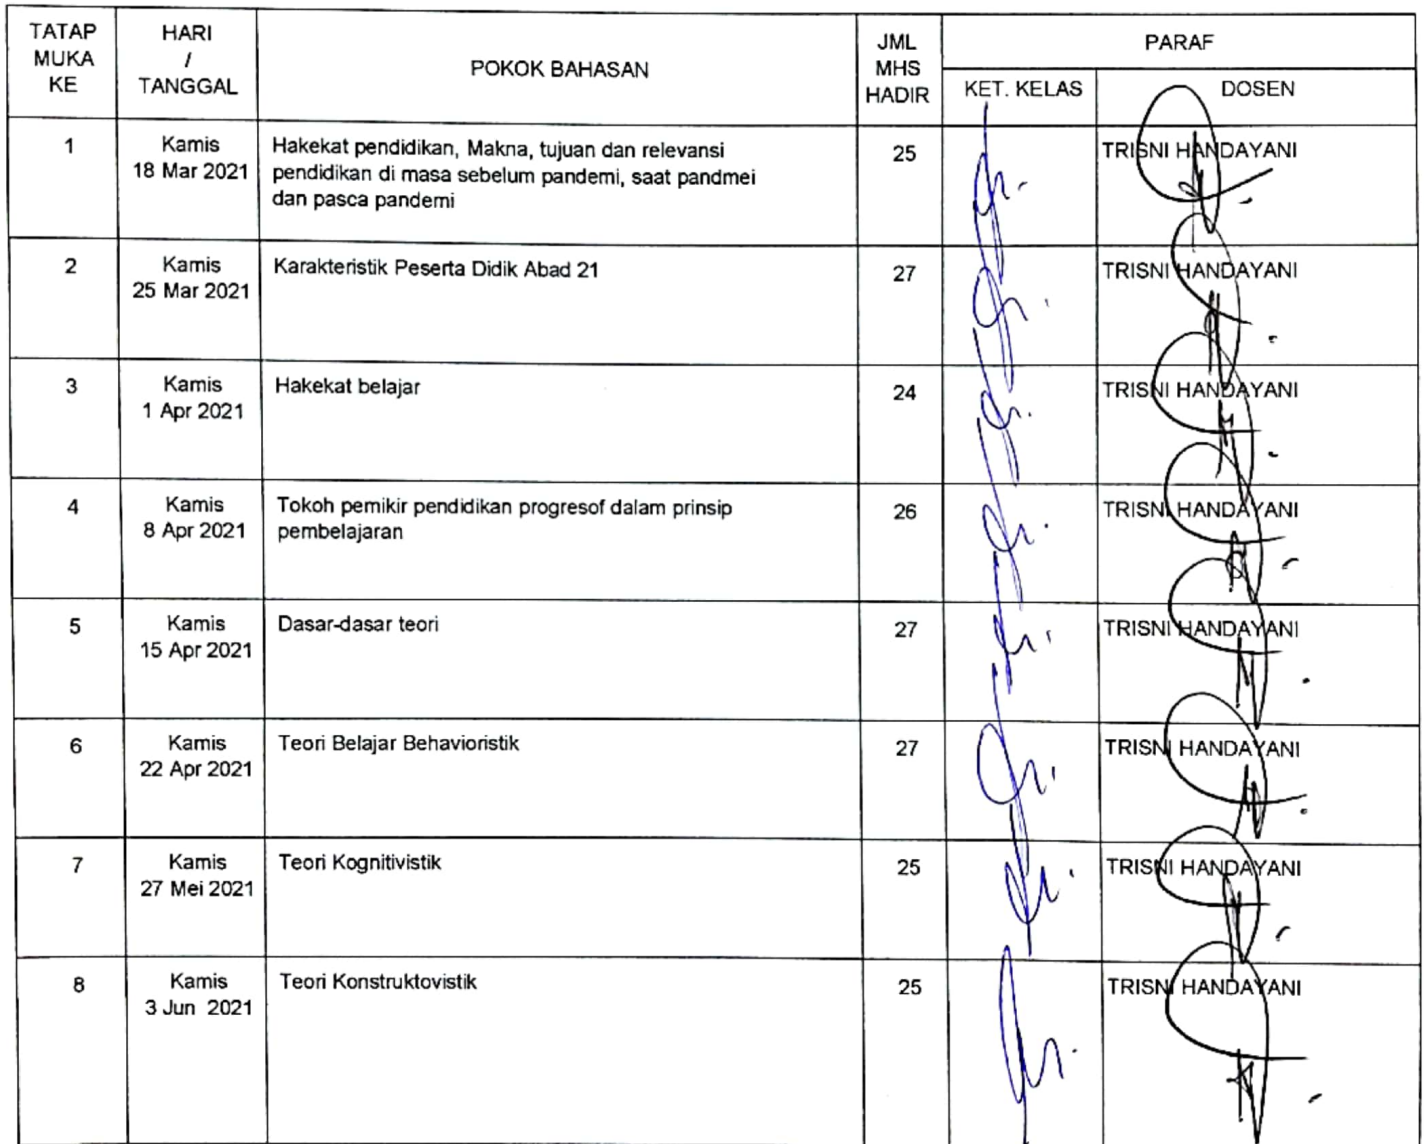 TATAP MUKA KE
HARI / TANGGAL
POKOK BAHASAN
JML MHS HADIR
PARAF
KET. KELAS
DOSEN
1
Kamis
18 Mar 2021
Hakekat pendidikan, Makna, tujuan dan relevansi
pendidikan di masa sebelum pandemi, saat pandmei
dan pasca pandemi
25
TRISNI HANDAYANI
2
Kamis
25 Mar 2021
Karakteristik Peserta Didik Abad 21
27
TRISNI HANDAYANI
3
Kamis
1 Apr 2021
Hakekat belajar
24
TRISNI HANDAYANI
4
Kamis
8 Apr 2021
Tokoh pemikir pendidikan progresof dalam prinsip
pembelajaran
26
TRISNI HANDAYANI
5
Kamis
15 Apr 2021
Dasar-dasar teori
27
TRISNI HANDAYANI
6
Kamis
22 Apr 2021
Teori Belajar Behavioristik
27
TRISNI HANDAYANI
7
Kamis
27 Mei 2021
Teori Kognitivistik
25
TRISNI HANDAYANI
8
Kamis
3 Jun 2021
Teori Konstruktovistik
25
TRISNI HANDAYANI